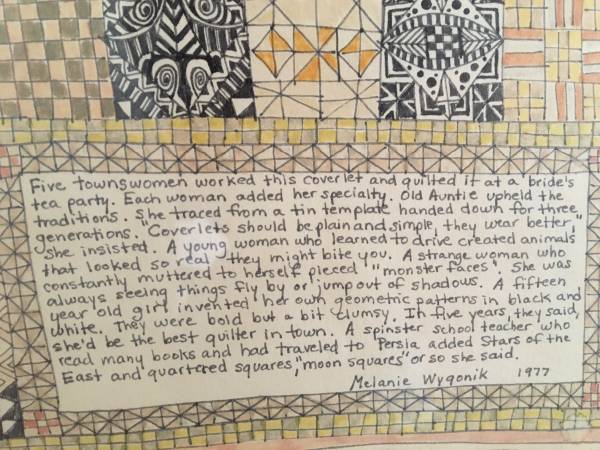 Five townswomen worked this coverlet and quilted it at a bride's
tea party. Each woman added her specialty. Old Auntie upheld the
traditions. She traced from a tin template handed down for three
generations. "Coverlets should be plain and simple, they wear better,"
she insisted. A young woman who learned to drive created animals
that looked so real they might bite you. A strange woman who
constantly muttered to herself pieced "monster faces". She was
always seeing things fly by or jump out of shadows. A fifteen
year old girl invented her own geometric patterns in black and
white. They were bold but a bit clumsy. In five years, they said,
she'd be the best quilter in town. A spinster school teacher who
read many books and had traveled to Persia added Stars of the
East and quartered squares, "moon squares" or so she said.
Melanie Wygonik 1977